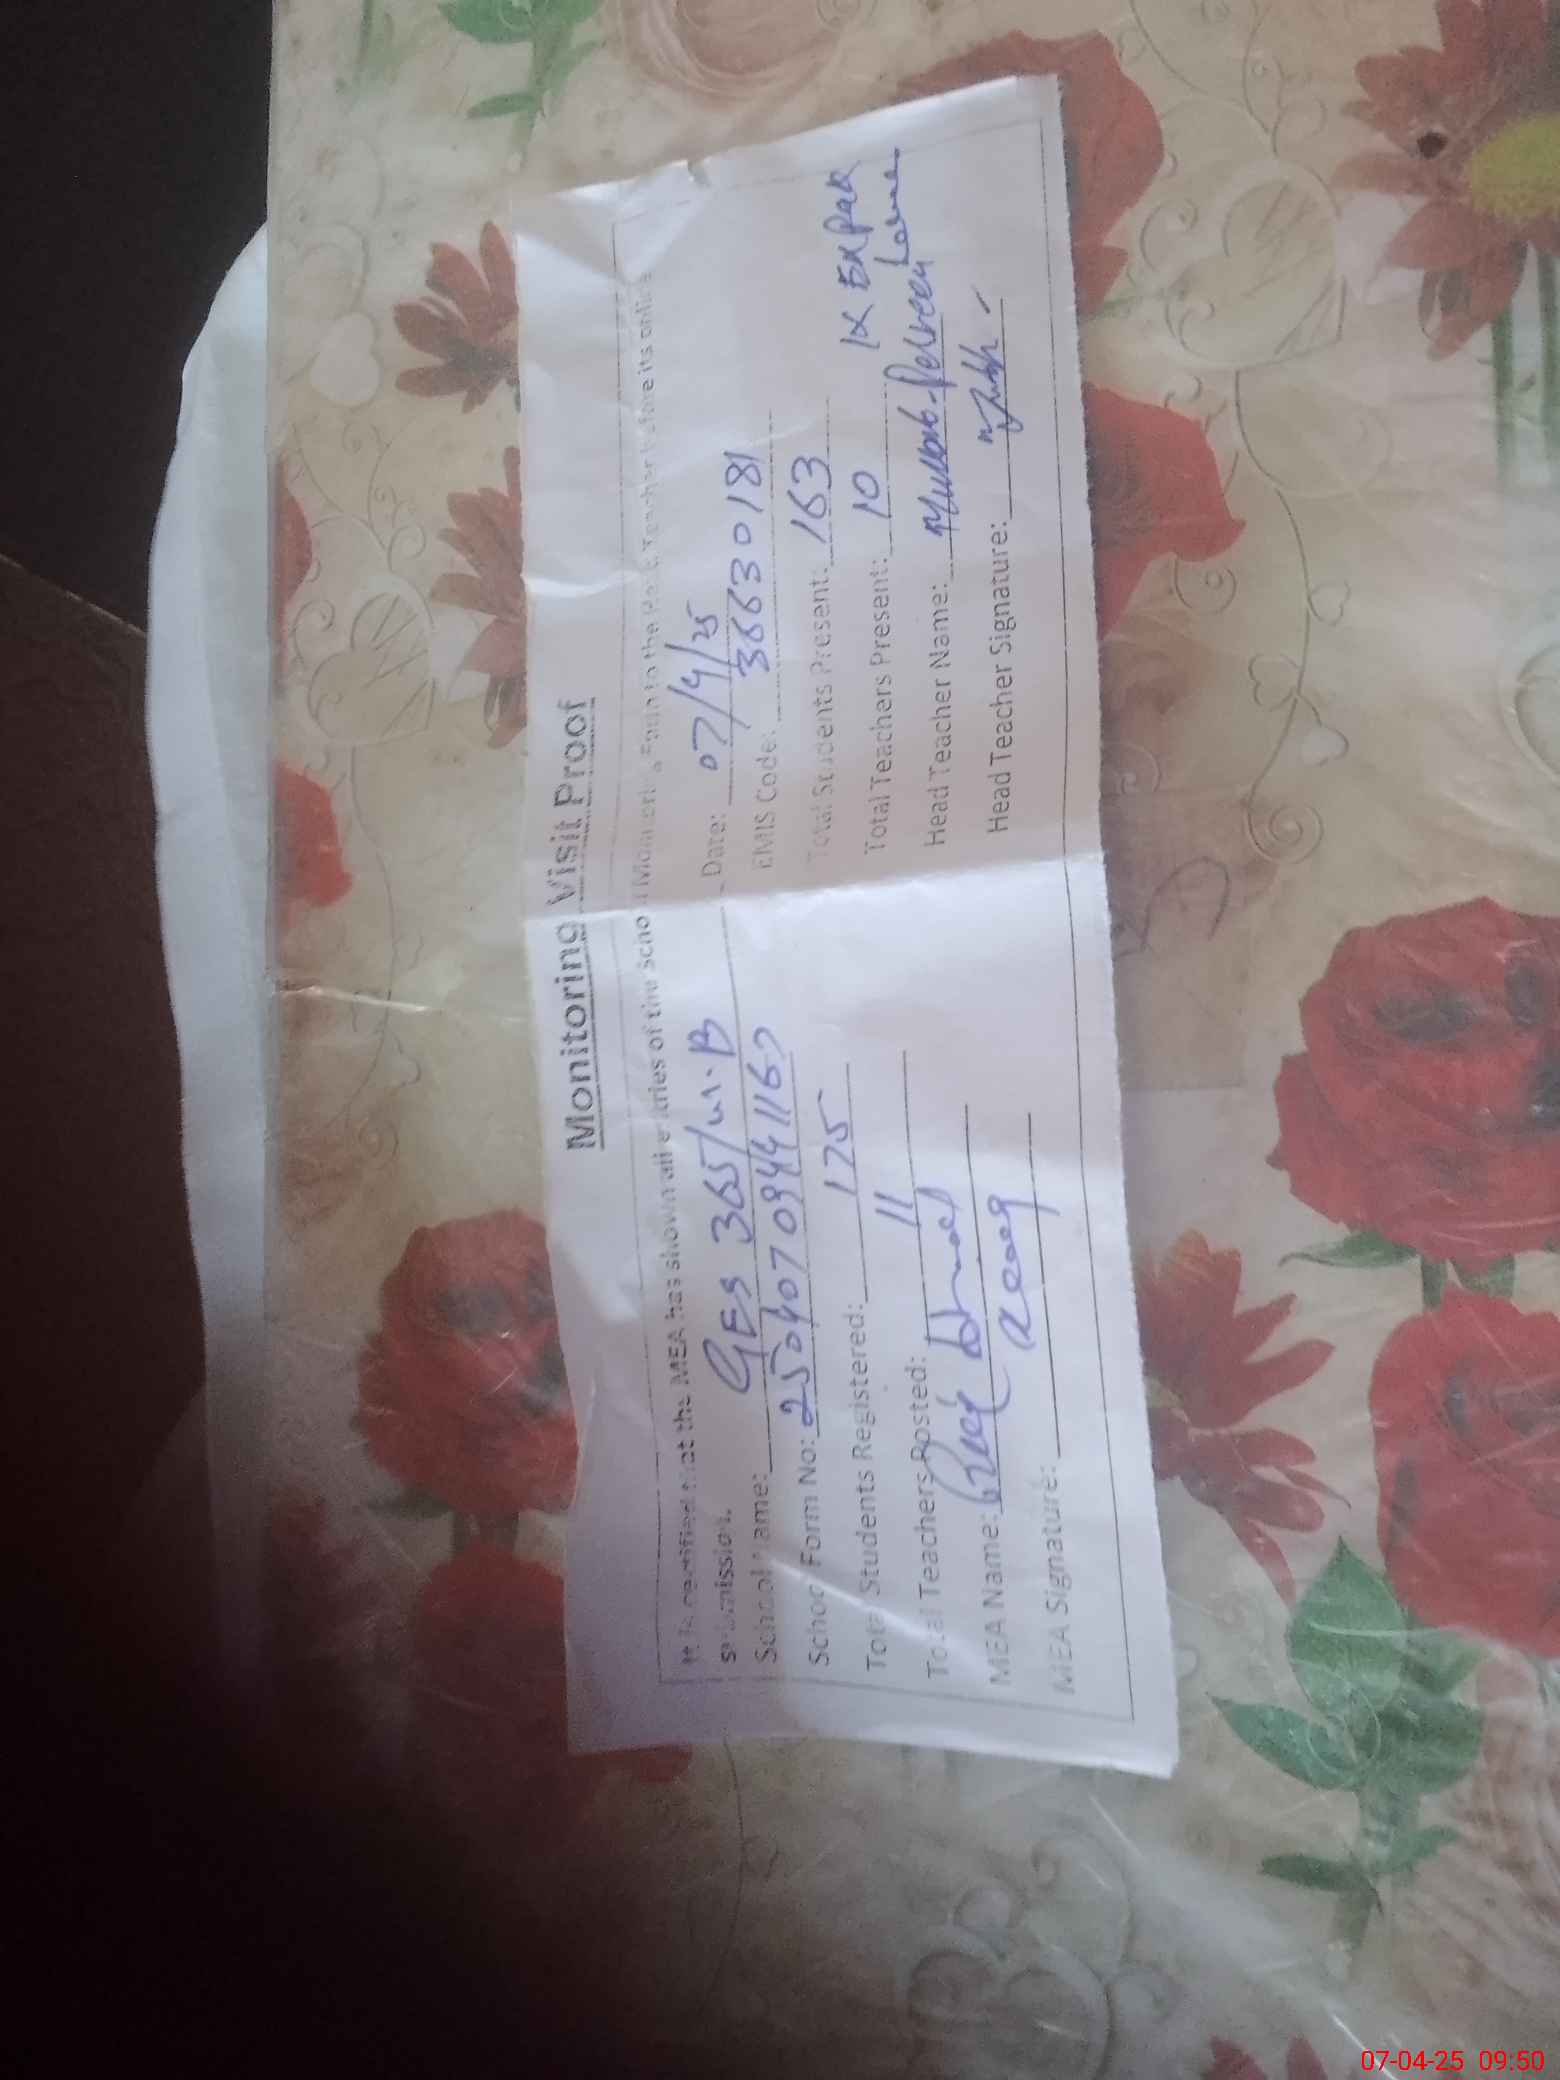 Monitoring Visit Proof
It is certified that the MEA has shown all entries of the school Monitoring Form to the Head Teacher before its online
submission.
School Name: GES 365/W.B Date: 07/4/25
School Form No: 250407094411167 EMIS Code: 36630181
Total Students Registered: 175 Total Students Present: 163
Total Teachers Posted: 11 Total Teachers Present: 10 1x Ex Pak Leave
MEA Name: Head Teacher Name: Perveen
MEA Signature: Head Teacher Signature:
07-04-25 09:50